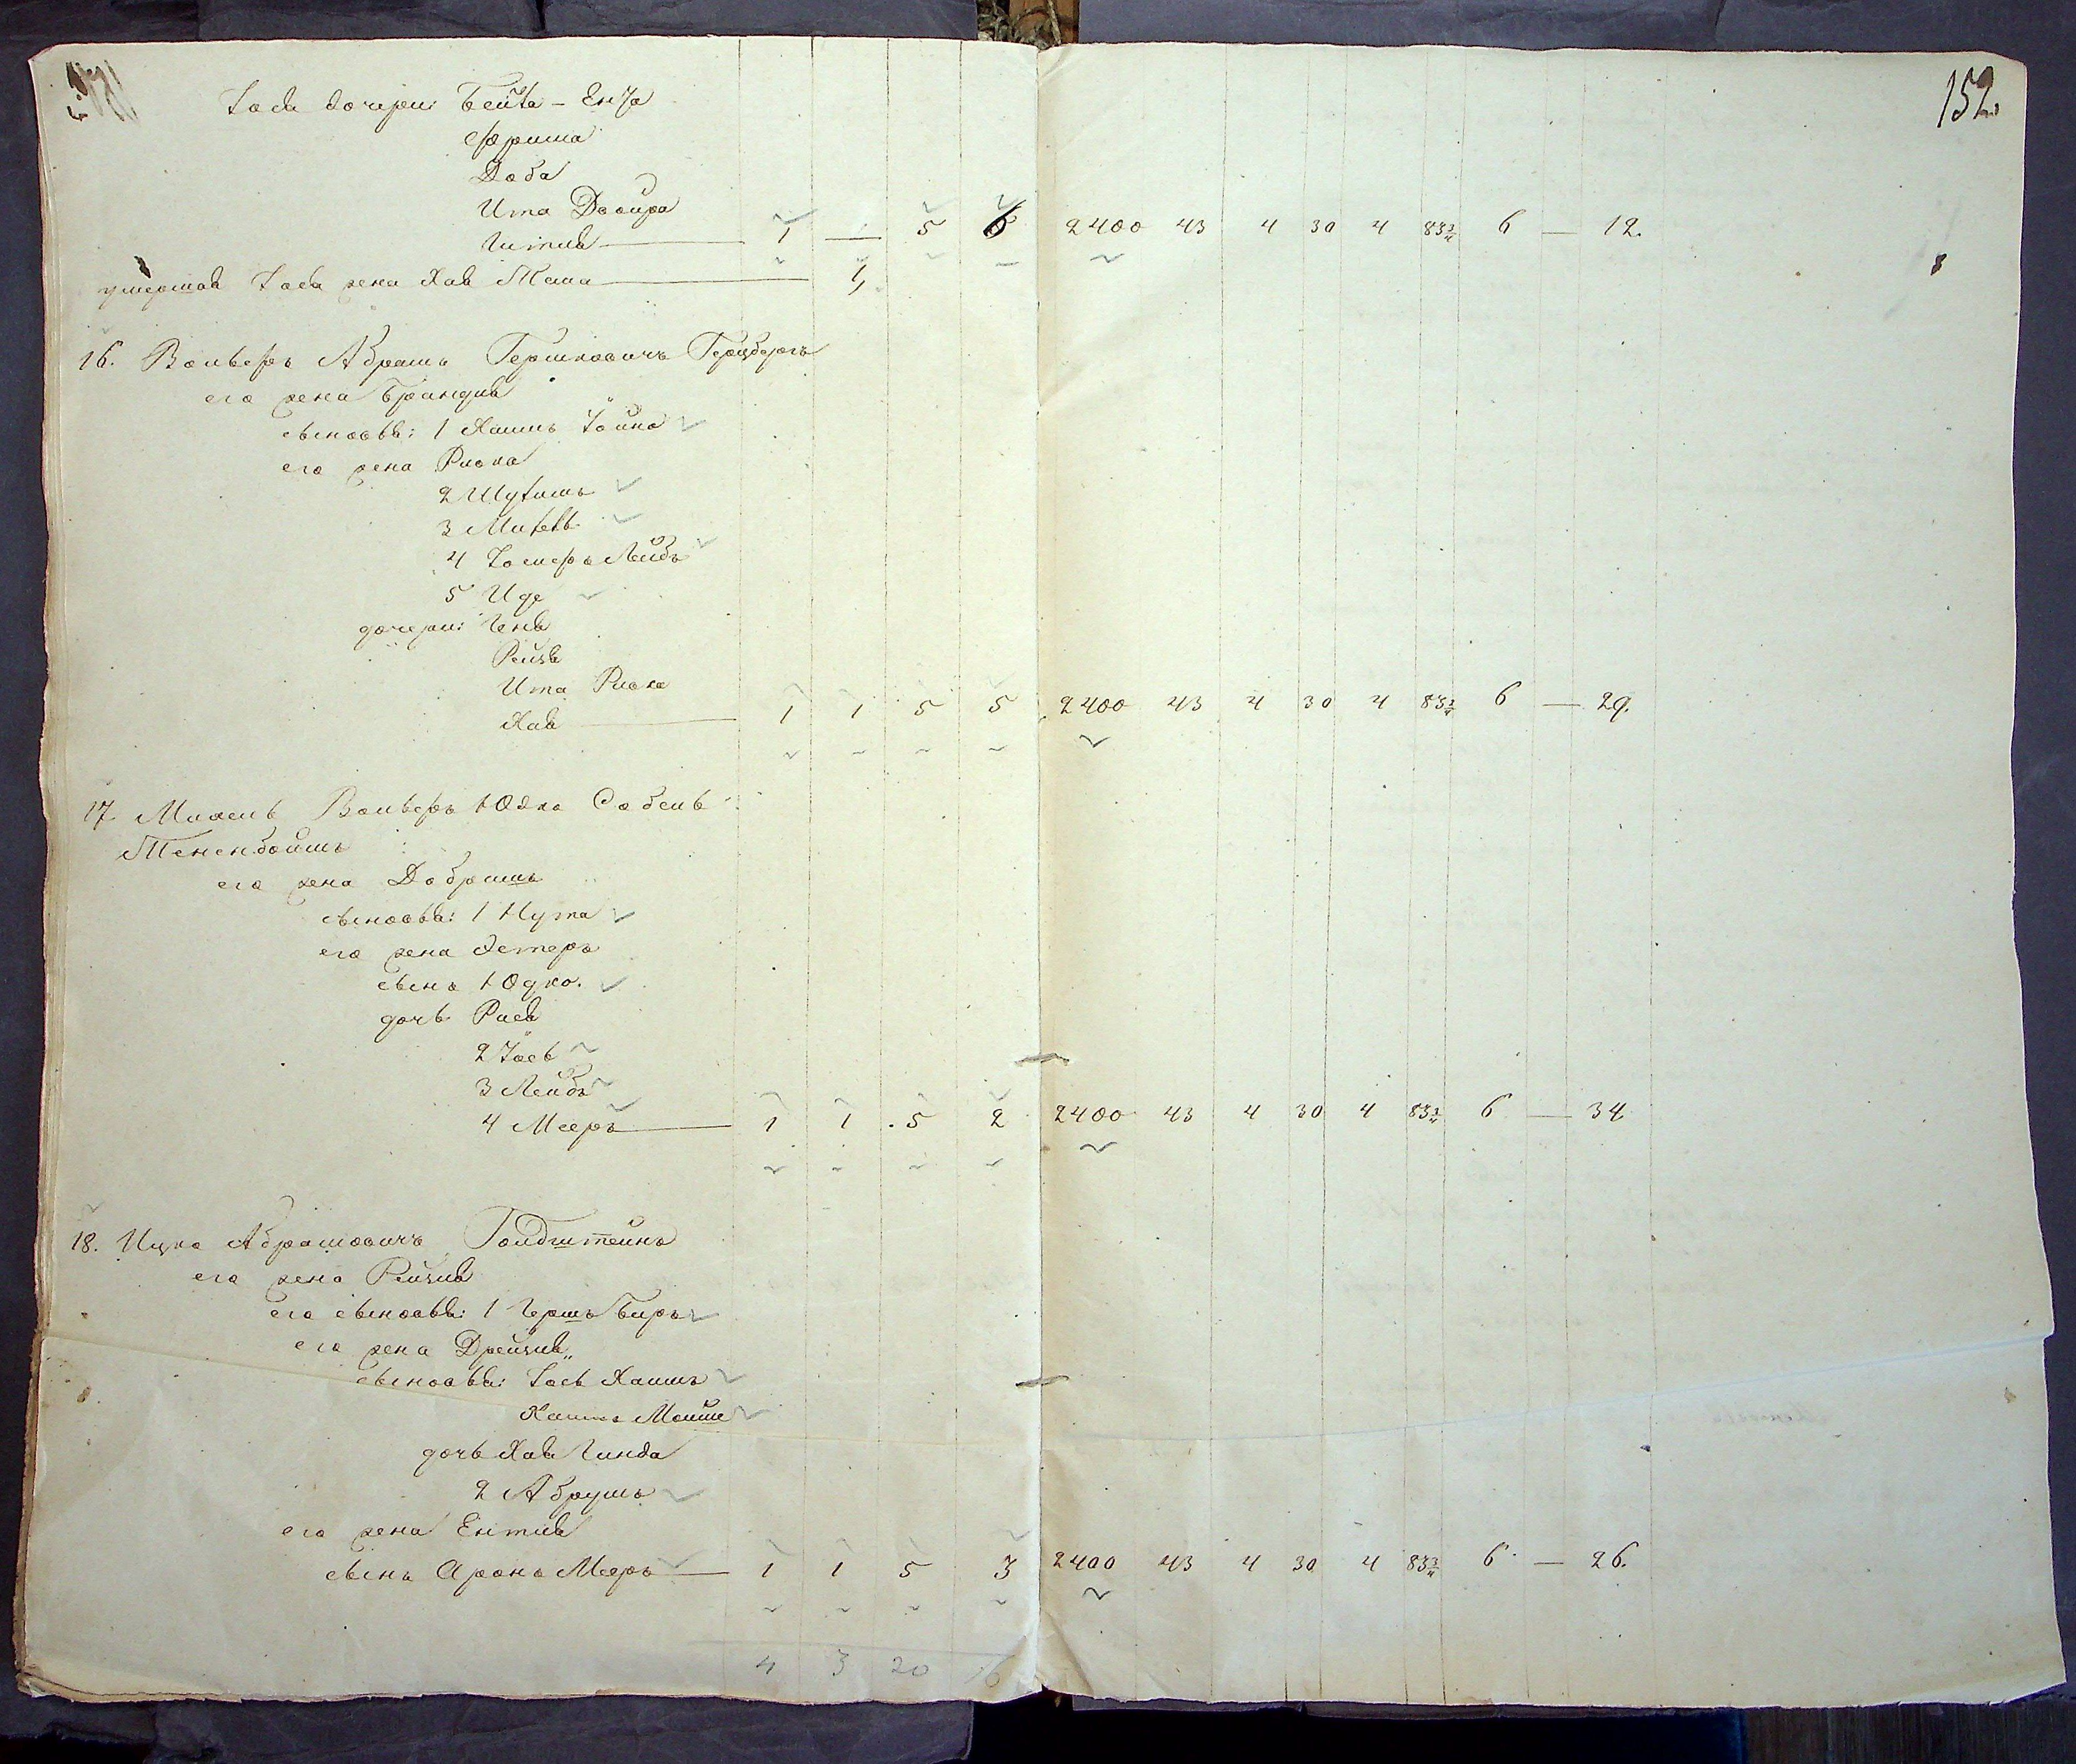 152.
Іося дочери: Бейла - Енза
Фрима
Доба
Ита Двойра
Гитля — 1 — 5 6 2400 43 4 30 4 83¾ 6 — 12.
умершая Іося жена Хая 1
16. Вольфъ Абрамъ Гершковичъ Герцбергъ
его жена Брандля
сыновья: 1 Хаимъ Іойна
его жена Ривка
2 Шулимъ
3 Михель
4 Іосифъ Лейбъ
5 Иде
дочери: Геня
Рейзя
Ита Ривка
Хая — 1 1 5 5 2400 43 4 30 4 83¾ 6 — 29.
17 Михель Вольфъ Юдко
Тененбоймъ
его жена Добришъ
сыновья: 1 Нута
его жена Эстеръ
сынъ Юдко.
дочь Рася
2 Іось
3 Лейбъ
4 Мееръ — 1 1 5 2 2400 43 4 30 4 83¾ 6 — 34
18. Ицко Абрамовичъ Гольдштейнъ
его жена Рейзля
его сыновья: 1 Гершъ Беръ
его жена Дрейзля
сыновья: Іось Хаимъ
Хаимъ Мойше
дочь Хая Гинда
2 Абрумъ
его жена Ентля
сынъ Аронъ Мееръ — 1 1 5 3 2400 43 4 30 4 83¾ 6 — 26.
4 3 20 16